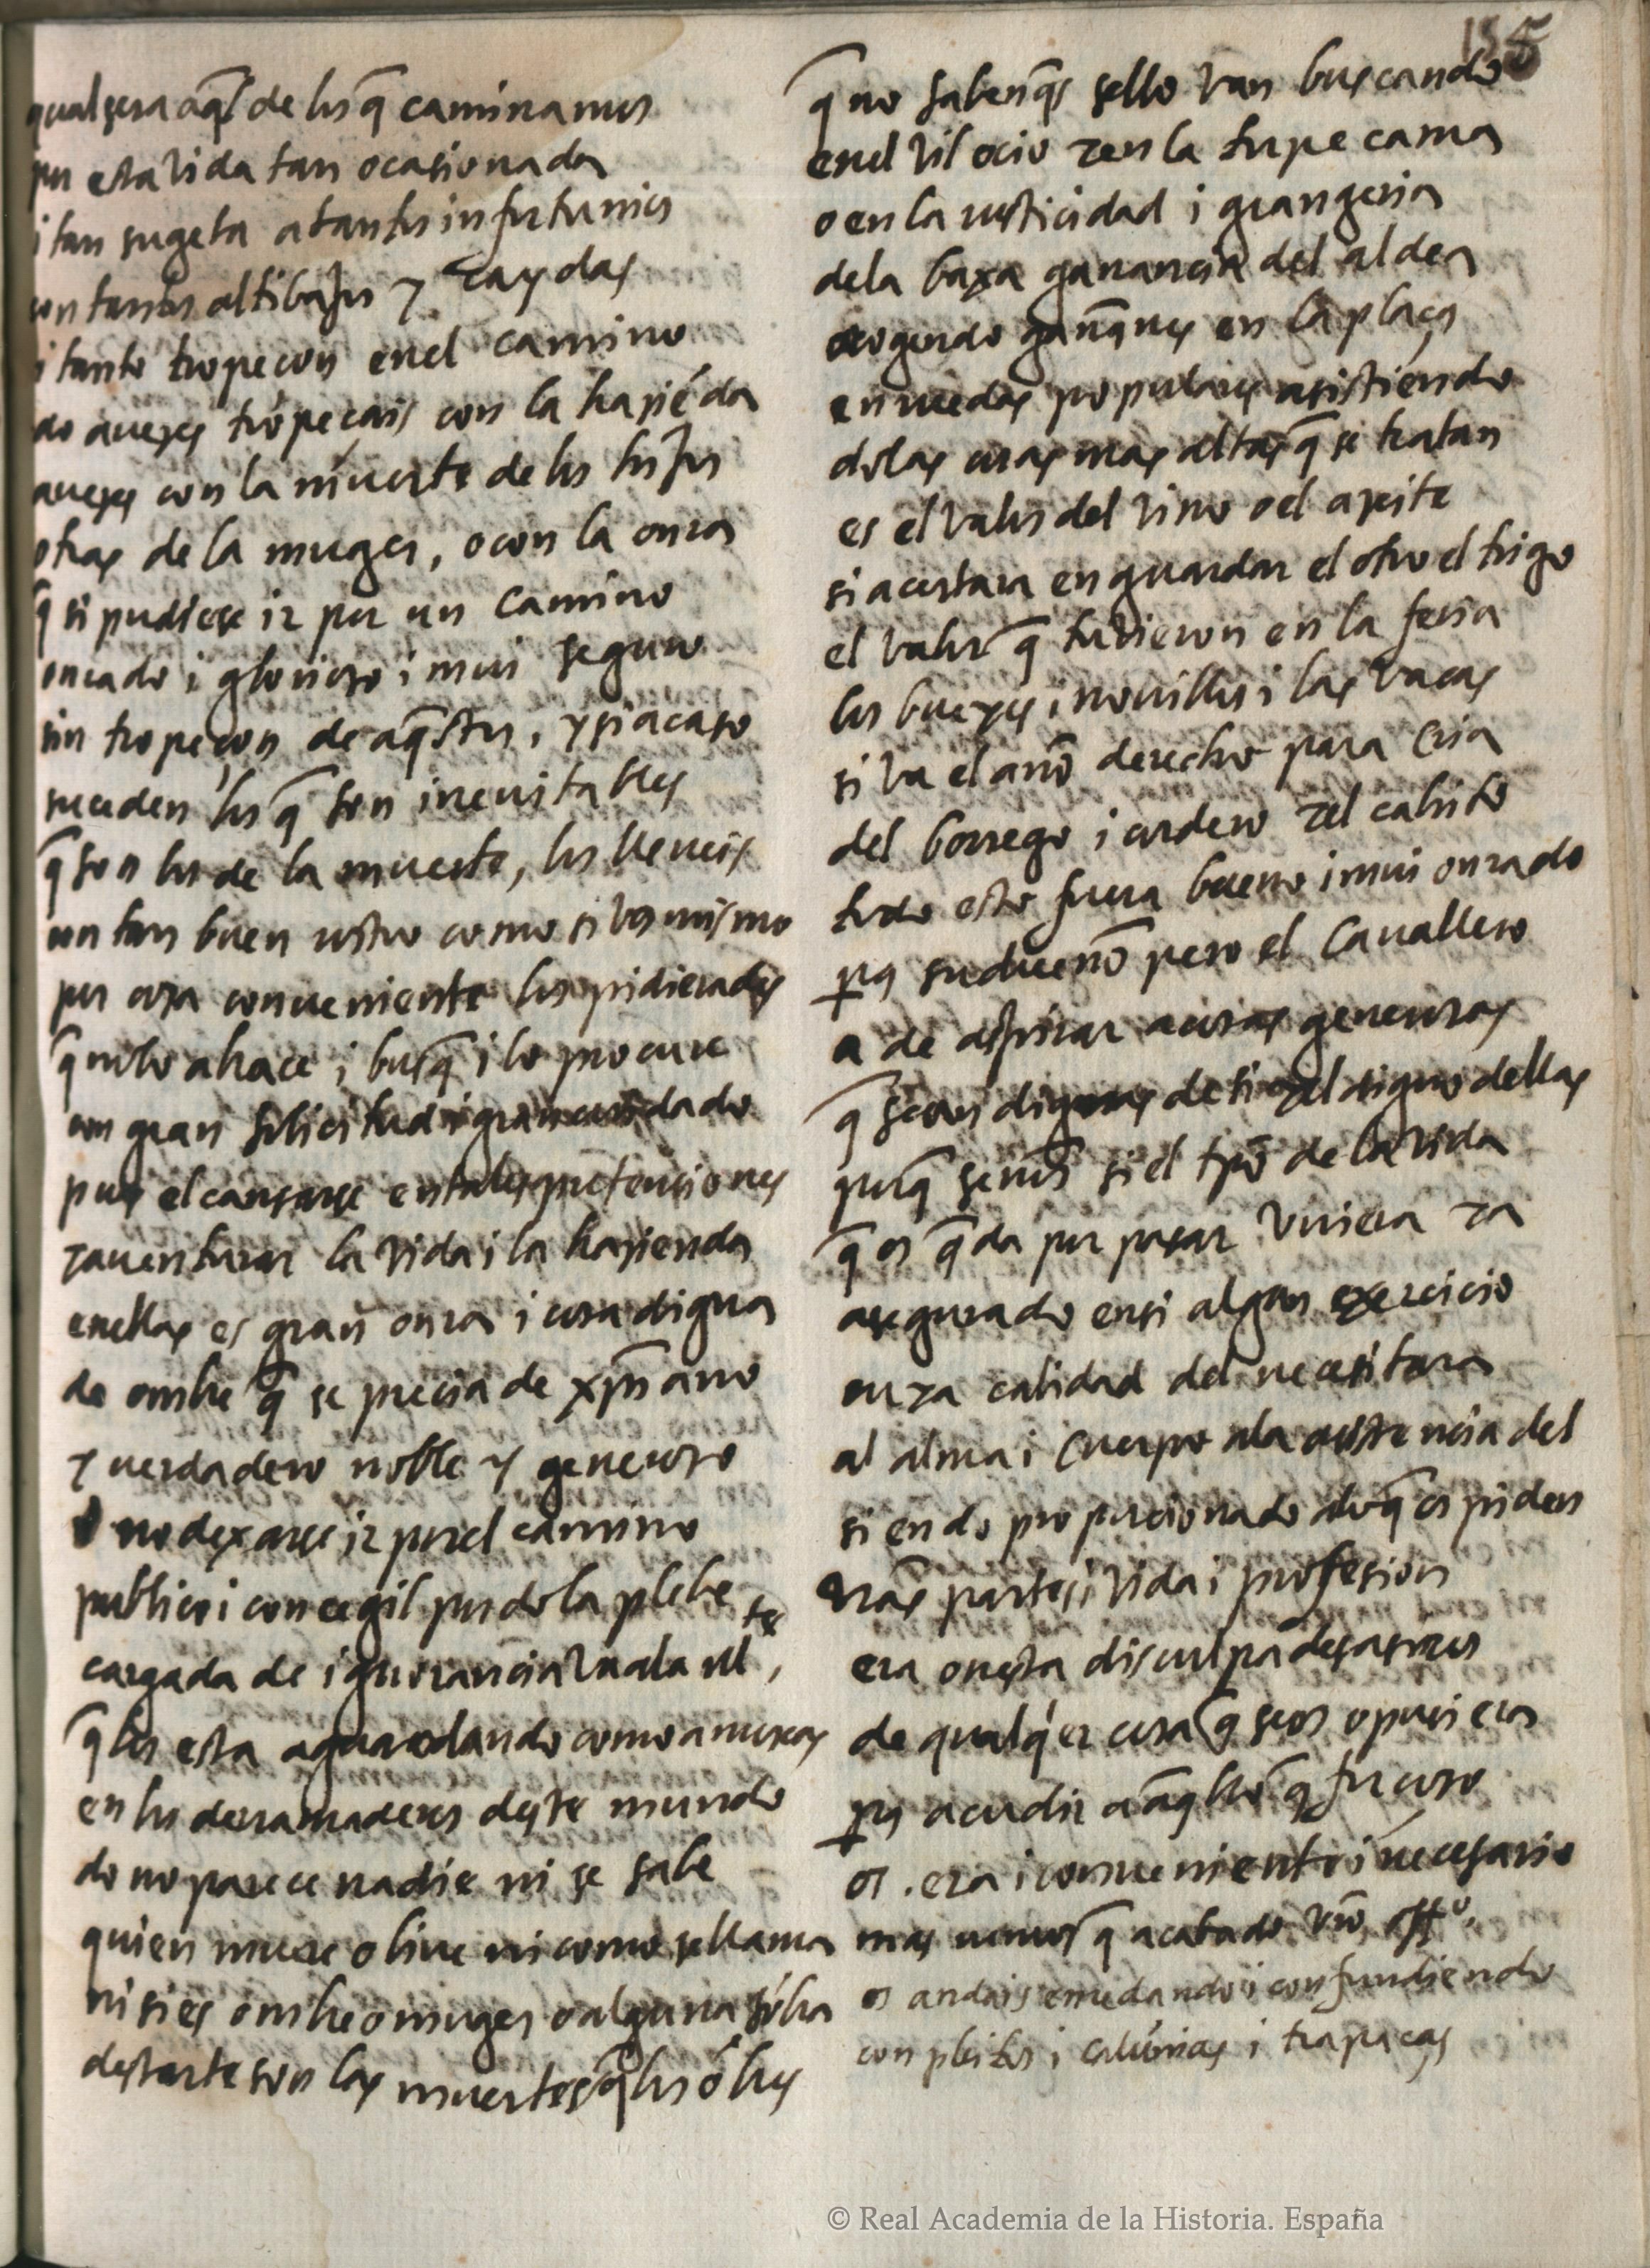 155
qual sera aq̃l de los q̃ caminamos
por esta vida tan ocasionada
i tan sugeta a tantos infortunios
con tantos altibajos y caydas
i tanto tropeçon en el camino
do aveçes tropeçais con la haçiẽda
aveçes con la muerte de los hijos
otras de la muger, o con la onra
q̃ si pudiese ir por un camino
onrado i glorioso i mui seguro
sin tropeçon de aq̃stos, y si acaso
suceden los q̃ son inevitables
q̃ son los de la muerte, los lleveis
con tan buen rostro como si vos mismo
por cosa conveniente los pidierades
q̃ no lo abrace i busq̃ i lo procure
con gran solicitud i gran cuidado
pues el cansarse en tales pretensiones
y aventurar la vida i la hazienda
en ellas es gran onra i cosa digna
de ombre q̃ se precia de xp̃iano
y verdadero noble y generoso
no dexarse ir por el camino
publico i concegil por do la plebe
cargada de ignorancia va a la
q̃ los esta aguardando como a moscas
en los derramaderos deste mundo
do no parece nadie ni se sabe
quien muere o vive ni como se llama
ni si es ombre o muger o alguna sõbra
desta arte son las muertes q̃ los õbres
q̃ no saben q̃s sello van buscando
en el vil ocio y en la torpe cama
o en la rusticidad i grangeria
de la baxa ganancia del aldea
cogendo gañanes en la plaça
en ruedas populares asistiendo
do las cosas mas altas q̃ se tratan
es el valor del vino o el azeite
si acertara en guardar el otro el trigo
el valor q̃ tuvieron en la feria
los bueyes i novillos i las vacas
si va el año derecho para cria
del borrego i cordero y el cabrito
todo esto fuera bueno i mui onrado
pa su dueño pero el cavallero
a de aspirar a cosas generosas
q̃ sean dignas de si y el digno dellas
porq̃ señor si el tpõ de la vida
q̃ os q̃da por pasar viniera ya
asegurado en si algun exercicio
cuya calidad del necesitara
al alma i cuerpo a la asistencia del
siendo proporcionado a lo q̃ os piden
vras partes i vida i profesion
era onesta disculpa desasiros
de qualq̃er cosa q̃ se os opusiera
pa acudir a aq̃llo q̃ forçoso
os era i conveniente i necesario
mas vemos q̃ acabado vrõ offº.
os andais enredando i confundiendo
con pleitos i calunias i trapaças
© Real Academia de la Historia. España